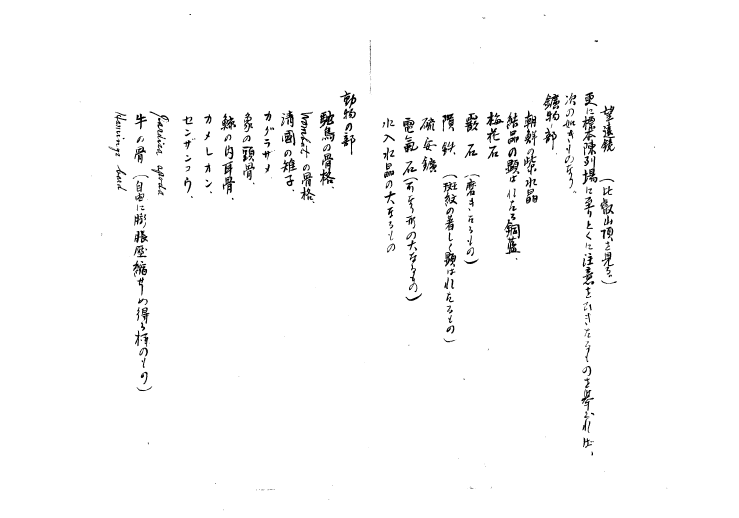 望遠鏡 (比叡山頂を見る)
更に標本陳列場に至りとくに注意をひきたるものを挙ぐれば、
次の如きものなり。
鑛物ノ部、
朝鮮の紫水晶
結晶の顕はれたる銅藍、
梅花石
霰石 (磨きたるもの)
隕鉄 (斑紋の著しく顕はれたるもの)
硫安鑛
電気石 (可なり形の大なるもの)
水入水晶の大なるもの
動物の部
駝鳥の骨格
Wombatの骨格
清國の雉子、
カグラザメ
象の頭骨、
鯨の内耳骨、
カメレオン、
センザンコウ、
牛の骨 (自由に膨脹屈縮せしめ得る様のもの)